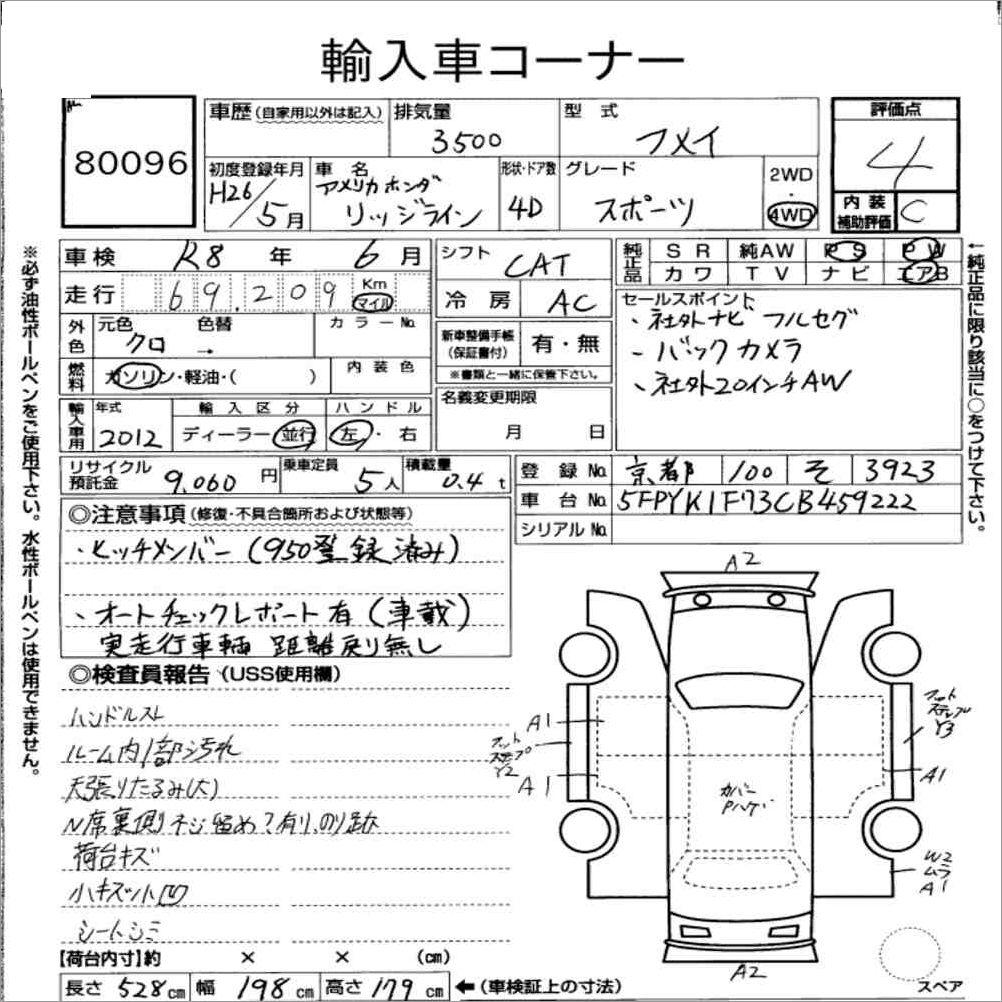 輸入車コーナー
80096
車歴 (自家用以外は記入)
排気量
3500
型式
フメイ
評価点
4
初度登録年月
H26/5月
車名
アメリカホンダ
リッジライン
形状・ドア数
4D
グレード
スポーツ
2WD
・
4WD
内装
補助評価
C
車検 R8年 6月
シフト
CAT
純正品
SR 純AW PS PW
カワ TV ナビ エアB
走行 69.209 Km
マイル
冷房 AC
セールスポイント
・社外ナビ フルセグ
・バックカメラ
・社外20インチAW
外色
元色 色替
クロ →
カラーNo.
新車整備手帳
(保証書付)
有・無
※書類と一緒に保管下さい。
燃料
ガソリン・軽油・( )
内装色
名義変更期限
月 日
輸入車用
年式
2012
輸入区分
ディーラー 並行
ハンドル
左・右
リサイクル
預託金
9,060円
乗車定員
5人
積載量
0.4t
登録No. 京都 100 そ 3923
車台No. 5FPYK1F73CB459222
シリアルNo.
◎注意事項 (修復・不具合箇所および状態等)
・ヒッチメンバー (950登録済み)
・オートチェックレポート有 (車載)
実走行車輌 距離戻り無し
◎検査員報告 (USS使用欄)
ハンドルスレ
ルーム内1部汚れ
天張りたるみ(大)
N席裏側ネジ留め?有り、のり跡
荷台キズ
小キズ小凹
シートシミ
【荷台内寸】約 × × (cm)
長さ 528cm 幅 198cm 高さ 179cm ←(車検証上の寸法)
A2
A1
フット
ステップ
Y2
A1
カバー
Pハゲ
フット
ステップル
Y3
A1
W2
ムラ
A1
A2
スペア
※必ず油性ボールペンをご使用下さい。水性ボールペンは使用できません。
←純正品に限り該当に○をつけて下さい。